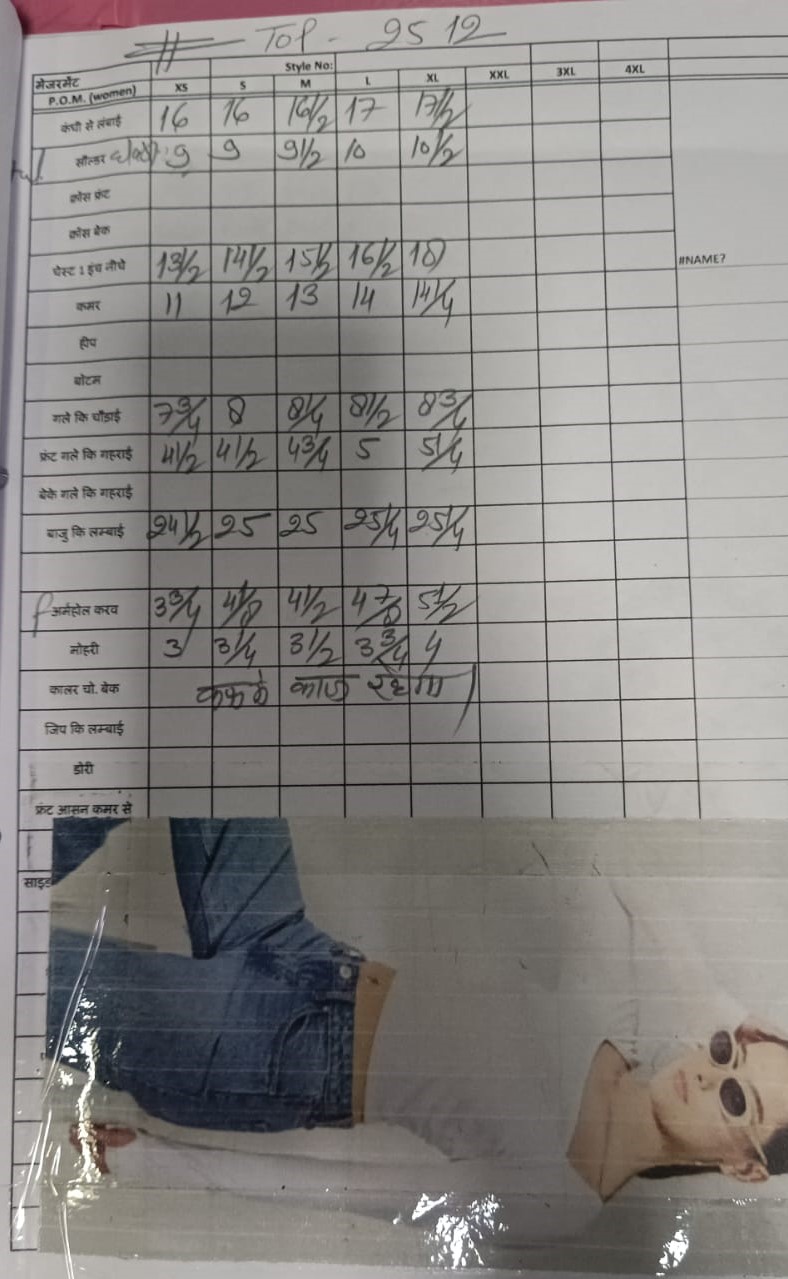 # TOP - 2512
मेजरमेंट Style No:
P.O.M. (women) XS S M L XL XXL 3XL 4XL
कंधी से लंबाई 16 16 16 1/2 17 17 1/2
सोल्डर 9 9 9 1/2 10 10 1/2
क्रोस फ्रंट
क्रोस बेक
चेस्ट 1 इंच नीचे 13 1/2 14 1/2 15 1/2 16 1/2 18 #NAME?
कमर 11 12 13 14 14 1/4
हीप
बोटम
गले कि चौडाई 7 3/4 8 8 1/4 8 1/2 8 3/4
फ्रंट गले कि गहराई 4 1/2 4 1/2 4 3/4 5 5 1/4
बेके गले कि गहराई
बाजु कि लम्बाई 24 1/2 25 25 25 1/4 25 1/4
अर्महोल करव 3 3/4 4 1/8 4 1/2 4 7/8 5 1/2
मोहरी 3 3 1/4 3 1/2 3 3/4 4
कालर चो. बेक कफ के काज रहेगा
जिप कि लम्बाई
डोरी
फ्रंट आसन कमर से
साइड